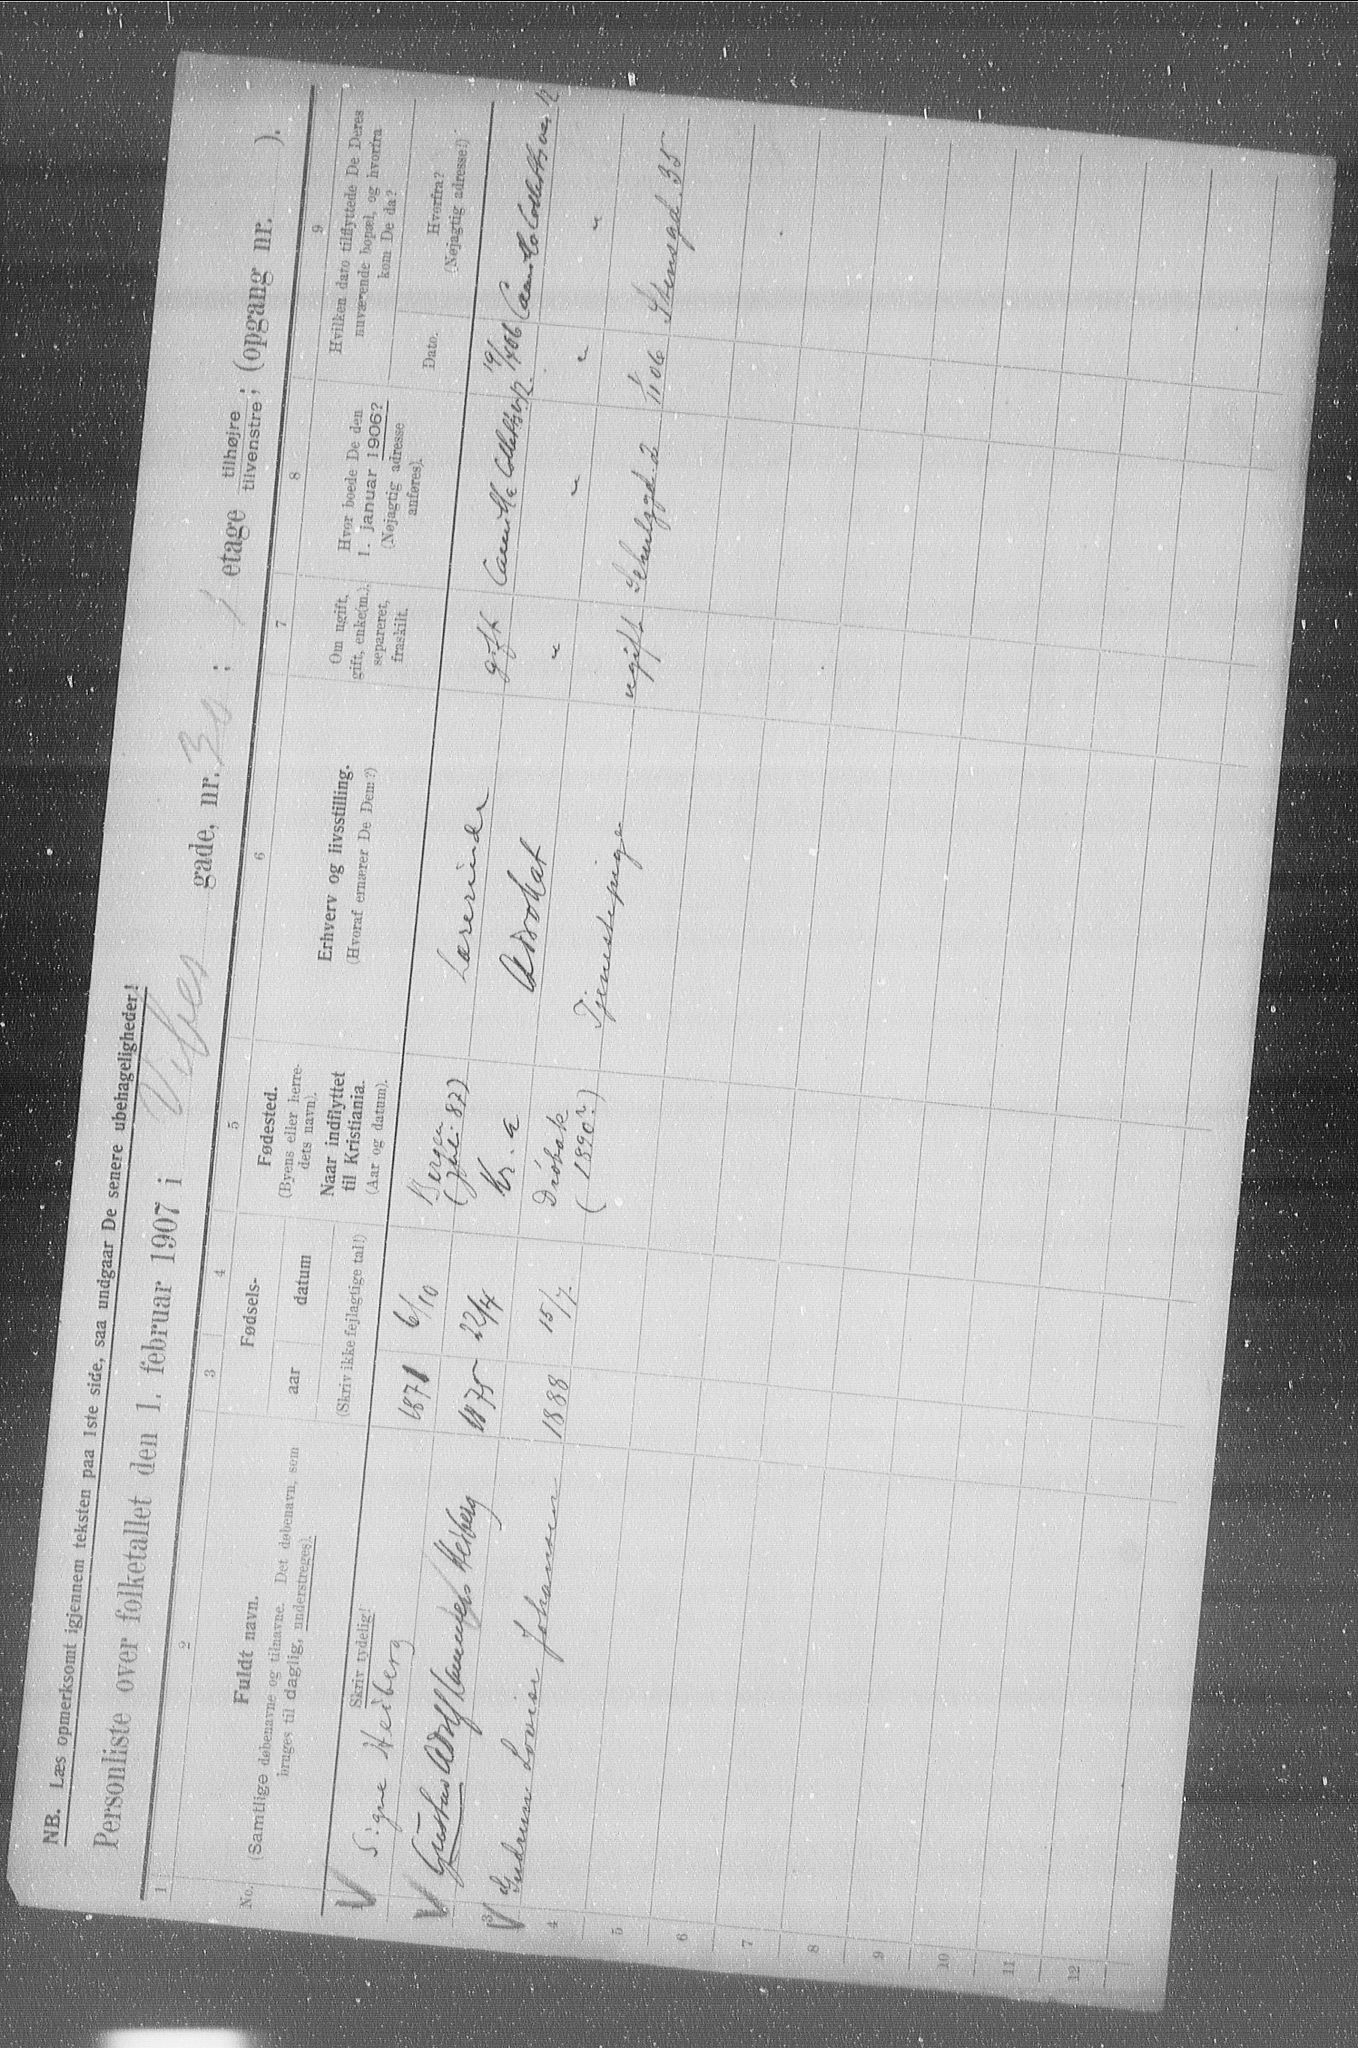 NB. Læs opmerksomt igjennem teksten paa 1ste side, saa undgaar De senere ubehageligheder!
Personliste over folketallet den 1. februar 1907 i Vibes gade, nr. 30 ; 1 etage tilhøjre tilvenstre ; (opgang nr. ).
1 2 3 4 5 6 7 8 9
No. Fuldt navn. (Samtlige døbenavne og tilnavne. Det døbenavn, som bruges til daglig, understreges). Skriv tydelig!
Fødsels- aar datum (Skriv ikke fejlagtige tal!)
Fødested. (Byens eller herredets navn). Naar indflyttet til Kristiania. (Aar og datum).
Erhverv og livsstilling. (Hvoraf ernærer De Dem?)
Om ugift, gift, enke(m.), separeret, fraskilt.
Hvor boede De den 1. januar 1906? (Nøjagtig adresse anføres).
Hvilken dato tilflyttede De Deres nuværende bopæl, og hvorfra kom De da?
Dato. Hvorfra? (Nøjagtig adresse!)
V Signe Heiberg 1871 6/10 Bergen (Juli 87) Lærerinde gift Camilla Collettsv 2 19/4 06 Camilla Collettsvei 2
V Gustav Adolf Heiberg 1875 22/4 Kr.a Advokat " " " "
V 3 Gudrun Lovise Johansen 1888 15/7 Drøbak (1890?) Tjenestepige ugift Schulzgd. 2 1/11 06 Stensgd. 35
4
5
6
7
8
9
10
11
12